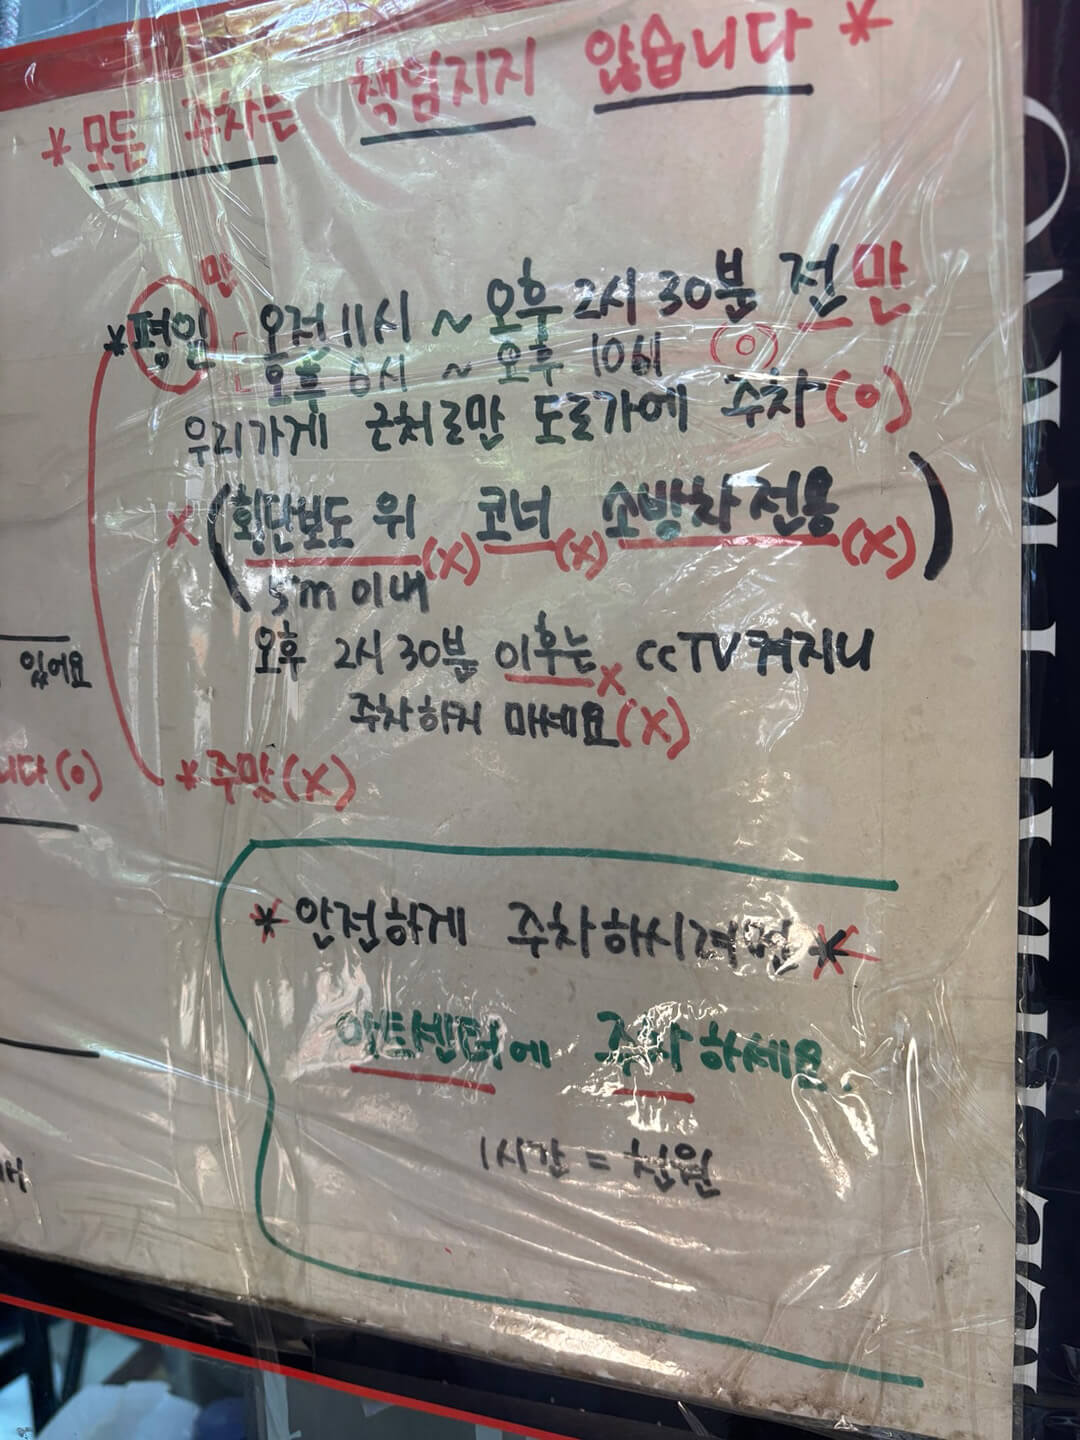 * 모든 주차는 책임지지 않습니다 *
만
* 평일 오전 11시 ~ 오후 2시 30분 전만
오후 6시 ~ 오후 10시 (o)
우리가게 근처로만 도로가에 주차 (o)
x (횡단보도 위 (x) 코너 (x) 소방차전용 (x))
5m 이내
오후 2시 30분 이후는 x ccTV켜지니
주차하지 마세요 (x)
있어요
니다 (o)
* 주말 (x)
* 안전하게 주차하시려면 *
아트센터에 주차하세요.
1시간 = 천원